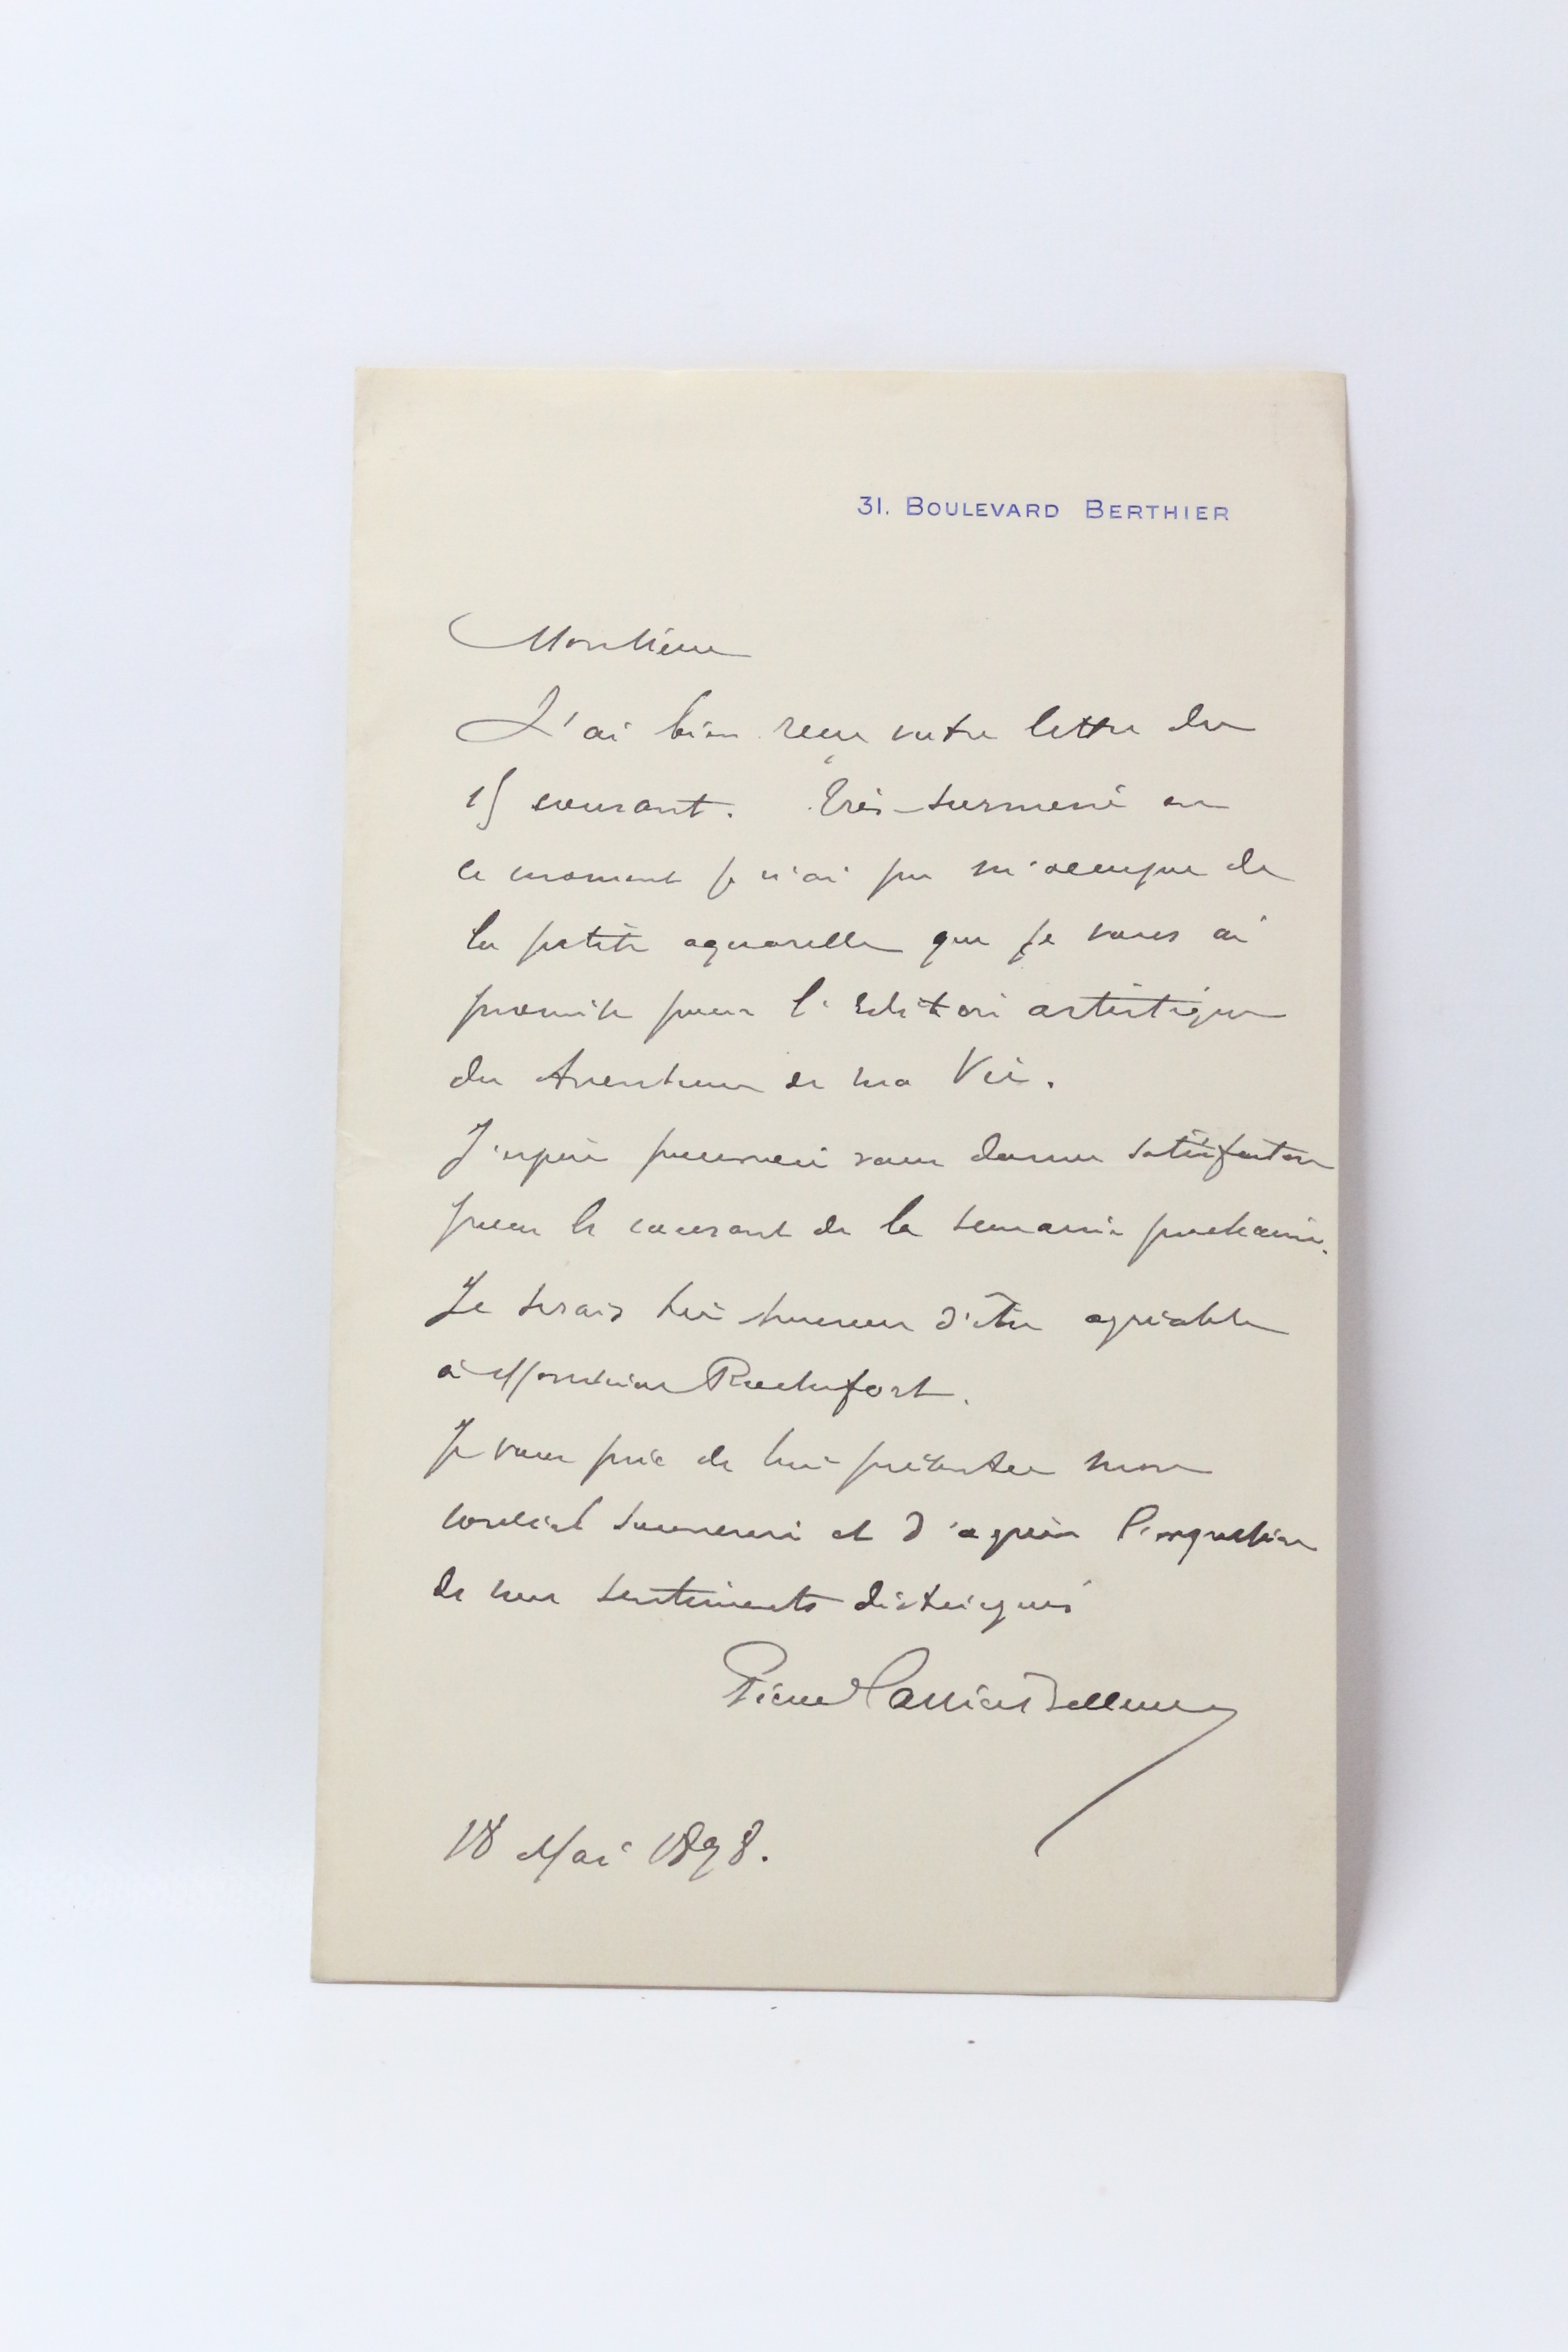 31. BOULEVARD BERTHIER
Monsieur
J'ai bien reçu votre lettre du
15 courant. Très surmené en
ce moment je n'ai pu m'occuper de
la petite aquarelle que je vous ai
promise pour l'édition artistique
des Aventures de ma Vie.
J'espère pouvoir vous donner satisfaction
pour le courant de la semaine prochaine.
Je serais très heureux d'être agréable
à Monsieur Rochefort.
Je vous prie de lui présenter mon
cordial souvenir et d'agréer l'expression
de mes sentiments distingués
Pierre Carrier Belleuse
18 Mai 1898.